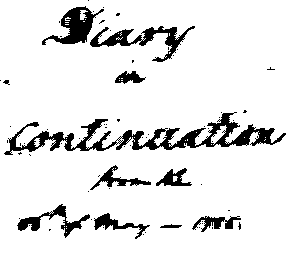 Diary
in
Continuation
from the
of May —